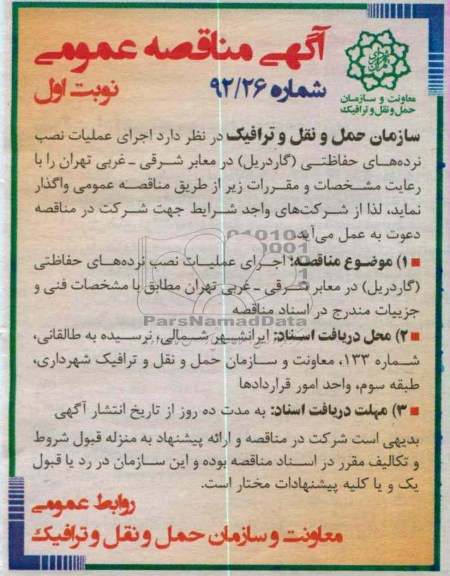 آگهی مناقصه عمومی
شماره ۹۲/۲۶
نوبت اول
معاونت و سازمان
حمل و نقل و ترافیک
سازمان حمل و نقل و ترافیک در نظر دارد اجرای عملیات نصب
نرده‌های حفاظتی (گاردریل) در معابر شرقی ـ غربی تهران را با
رعایت مشخصات و مقررات زیر از طریق مناقصه عمومی واگذار
نماید، لذا از شرکت‌های واجد شرایط جهت شرکت در مناقصه
دعوت به عمل می‌آید.
۱) موضوع مناقصه: اجرای عملیات نصب نرده‌های حفاظتی
(گاردریل) در معابر شرقی ـ غربی تهران مطابق با مشخصات فنی و
جزییات مندرج در اسناد مناقصه
ParsNamadData
۲) محل دریافت اسناد: ایرانشهر شمالی، نرسیده به طالقانی،
شماره ۱۳۳، معاونت و سازمان حمل و نقل و ترافیک شهرداری،
طبقه سوم، واحد امور قراردادها
۳) مهلت دریافت اسناد: به مدت ده روز از تاریخ انتشار آگهی
بدیهی است شرکت در مناقصه و ارائه پیشنهاد به منزله قبول شروط
و تکالیف مقرر در اسناد مناقصه بوده و این سازمان در رد یا قبول
یک و یا کلیه پیشنهادات مختار است.
روابط عمومی
معاونت و سازمان حمل و نقل و ترافیک